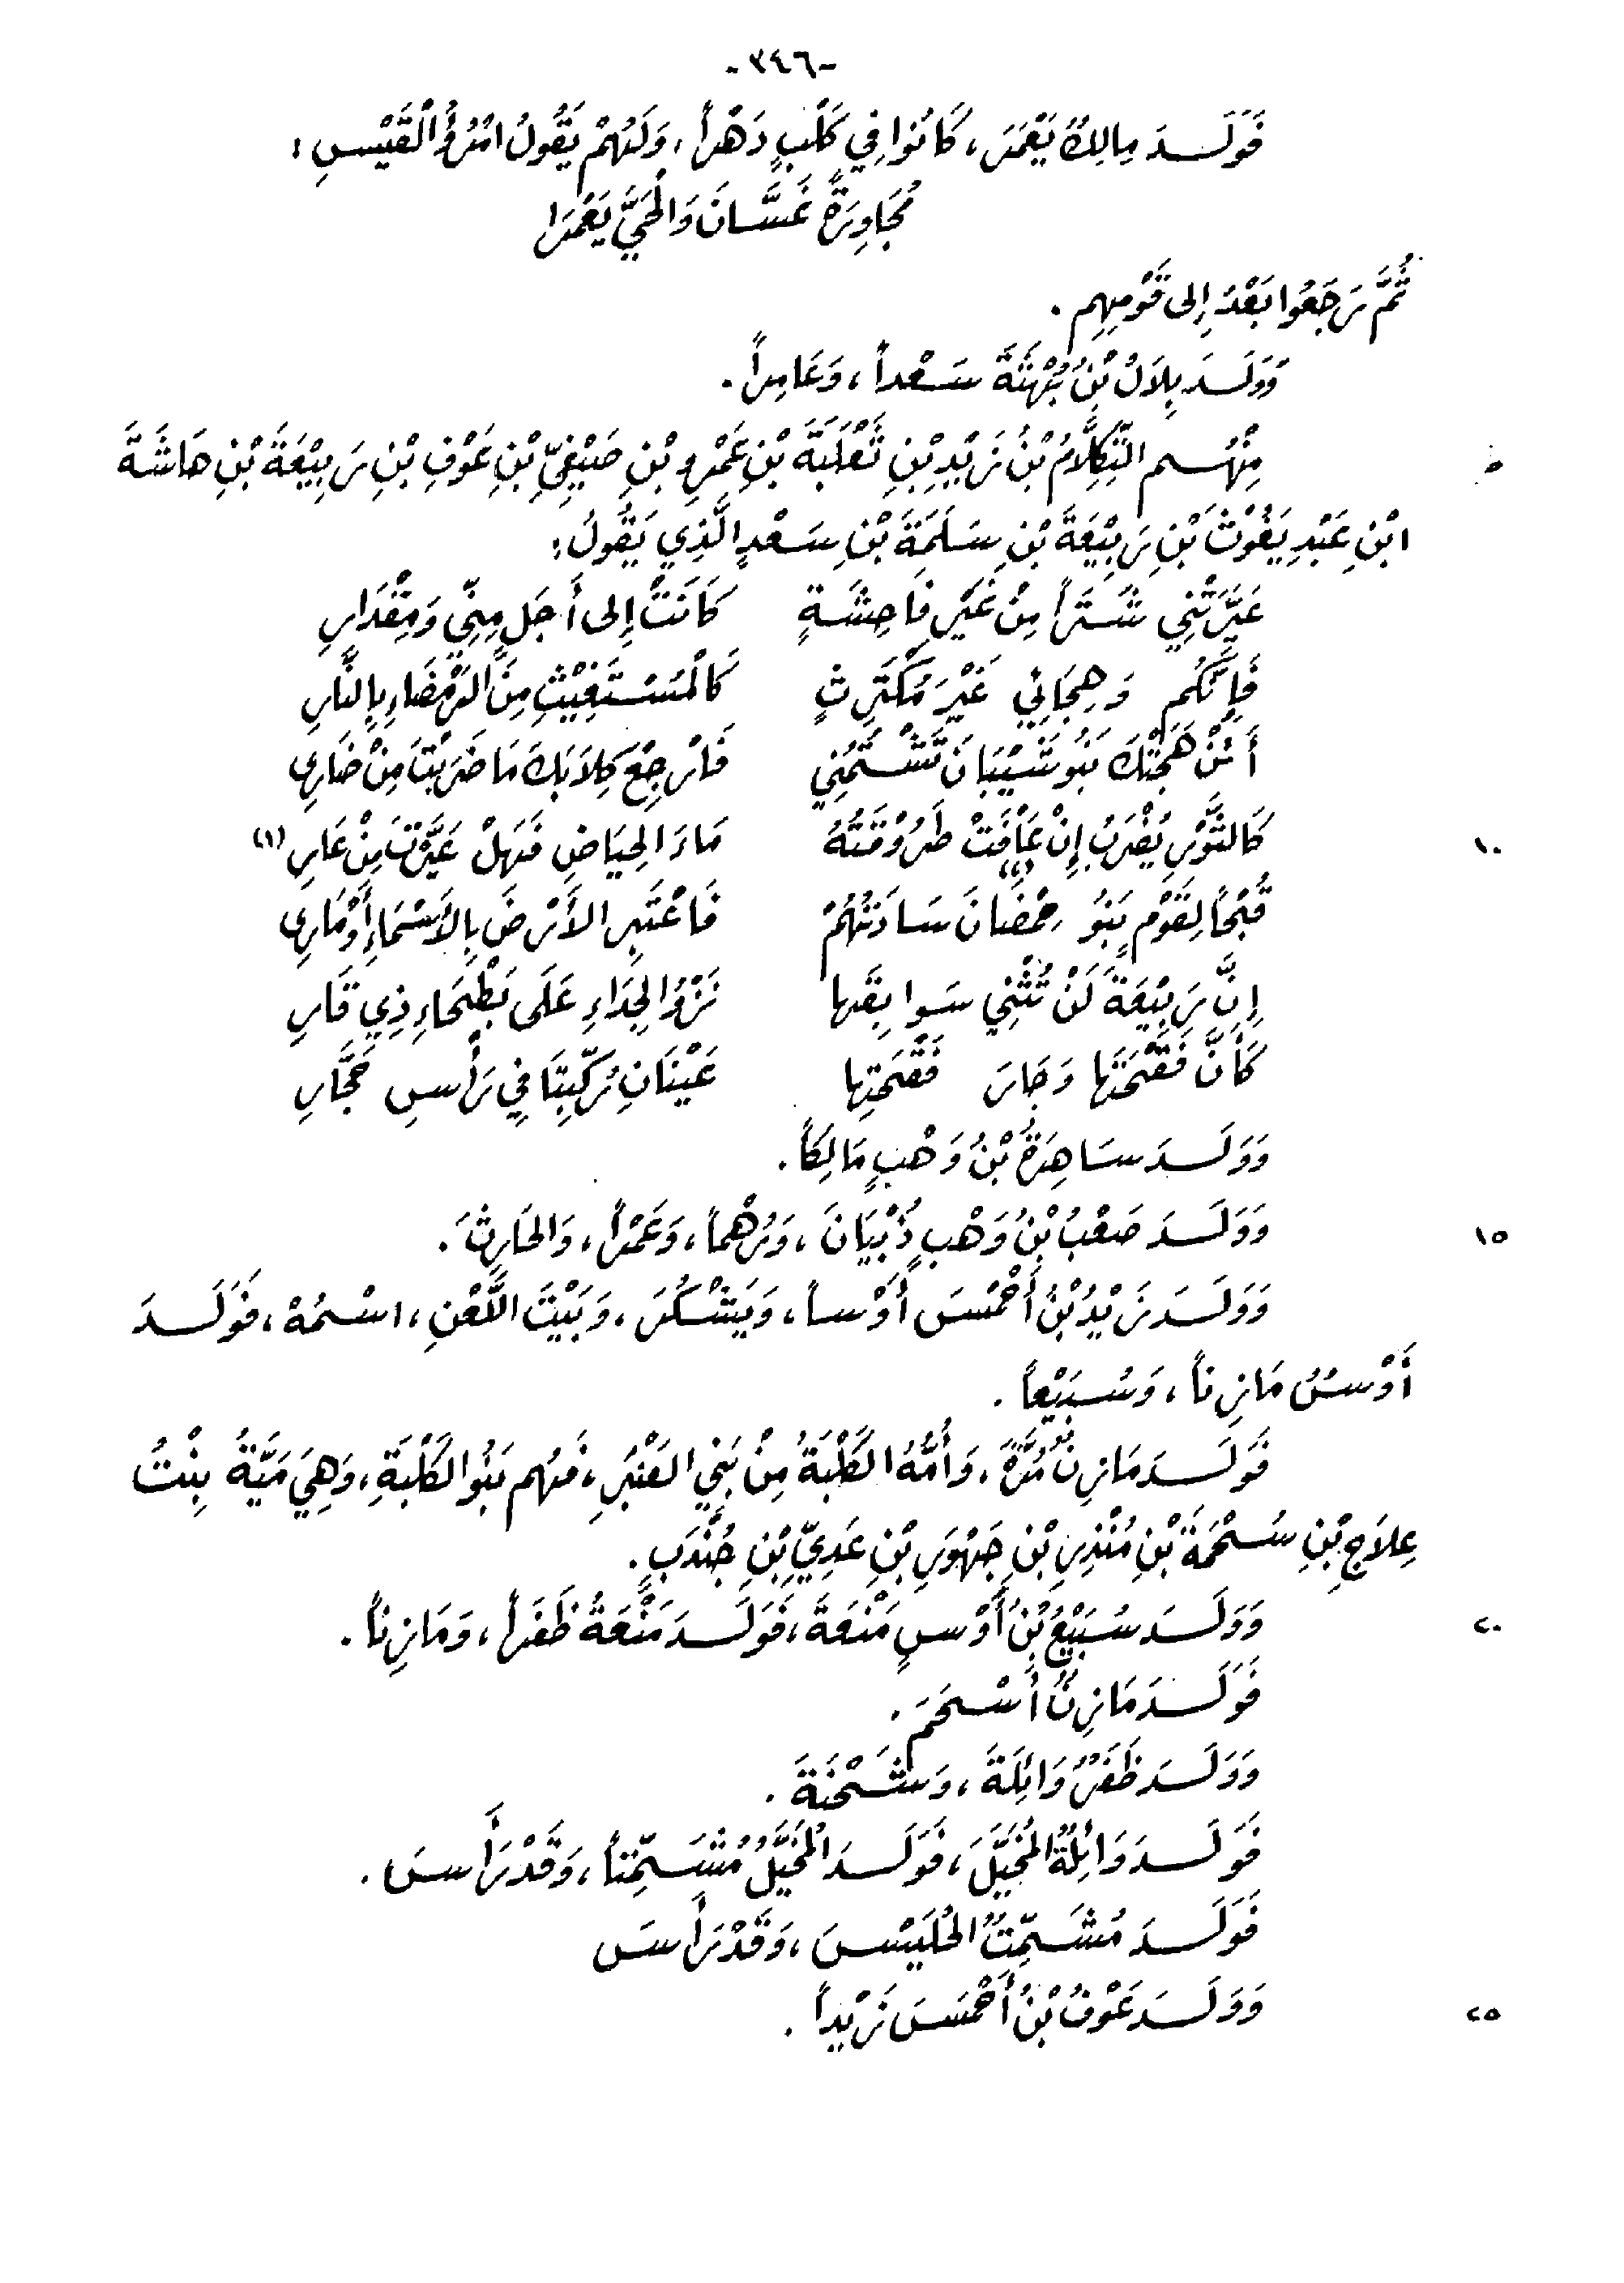 -٣٤٦-
فَوَلَدَ مَالِكٌ يَعْمَرَ، كَانُوا فِي كَلْبٍ دَهْراً، وَلَهُمْ يَقُولُ امْرُؤُ الْقَيْسِ:
مُجَاوِرَةً غَسَّانَ وَالْحَيَّ يَعْمَرَا
ثُمَّ رَجَعُوا بَعْدُ إِلى قَوْمِهِم.
وَوَلَدَ بِلاَلُ بْنُ بُهْثَةَ سَعْداً، وَعَامِراً.
مِنْهُم التِّكِلاَّمُ بْنُ زَيْدِ بْنِ ثَعْلَبَةَ بْنِ عَمْرِو بْنِ صَيْفِيِّ بْنِ عَوْفِ بْنِ رَبِيْعَةَ بْنِ هَاشَةَ ٥
ابْنِ عَبْدِ يَغُوْثَ بْنِ رَبِيْعَةَ بْنِ سَلَمَةَ بْنِ سَعْدٍ الَّذِي يَقُولُ:
عَيَّرْتَنِي شَتَراً مِنْ غَيْرِ فَاحِشَةٍ كَانَتْ إِلى أَجَلٍ مِنِّي وَمِقْدَارِ
فَإِنَّكُم وَهِجَائِي غَيْرَ مُكْتَرِثٍ كَالْمُسْتَغِيْثِ مِنَ الرَّمْضَاءِ بِالنَّارِ
أَئِنْ هَجَتْكَ بَنُو شَيْبَانَ تَشْتُمُنِي فَارْجِعْ كِلاَبَكَ مَا ضَرَيْتَ مِنْ ضَارِي
كَالثَّوْرِ يُضْرَبُ إِنْ عَافَتْ طَرُوْقَتُهُ مَاءَ الحِيَاضِ فَهَلْ عَيَّرْتَ مِنْ عَارِ (١) ١٠
قُبْحاً لِقَوْمٍ بَنُو حِمْضَانَ سَادَتُهُمْ فَاعْتَبِرِ الأَرْضَ بِالأَسْمَاءِ أَوْ مَارِي
إِنَّ رَبِيْعَةَ لَنْ تُثْنِي سَوابِقَها نَزْوُ الجِدَاءِ عَلَى بَطْحَاءِ ذِي قَارِ
كَأَنَّ فَقْحَتَها وَجَارَ فَقْحَتِها عَيْنَانِ رُكِّبَتَا فِي رَأْسِ حَجَّارِ
وَوَلَدَ سَاهِرَةُ بْنُ وَهْبٍ مَالِكاً.
وَوَلَدَ صَعْبُ بْنُ وَهْبٍ ذُبْيَانَ، وَرُهْماً، وَعَمْراً، وَالحَارِثَ. ١٥
وَوَلَدَ زَيْدُ بْنُ أَحْمَسَ أَوْساً، وَيَشْكُرَ، وَبَيْتَ اللَّعْنِ، اسْمُهُ، فَوَلَدَ
أَوْسُ مَازِناً، وَسُبَيْعاً.
فَوَلَدَ مَازِنُ مُرَّةَ، وَأُمُّهُ الكَلْبَةُ مِنْ بَنِي العَنْبَرِ، فَهُم بَنُو الكَلْبَةِ، وَهِيَ مَيَّةُ بِنْتُ
عِلاَجِ بْنِ سُحْمَةَ بْنِ مُنْذِرِ بْنِ جَهْوَرِ بْنِ عَدِيِّ بْنِ جُنْدَبٍ.
وَوَلَدَ سُبَيْعُ بْنُ أَوْسٍ مَنْعَةَ، فَوَلَدَ مَنْعَةُ ظَفَراً، وَمَازِناً. ٢٠
فَوَلَدَ مَازِنٌ أَسْحَمَ.
وَوَلَدَ ظَفَرٌ وَائِلَةَ، وَشَحْنَةَ.
فَوَلَدَ وَائِلَةُ الْمُخَيَّلَ، فَوَلَدَ الْمُخَيَّلُ مُشَمِّتاً، وَقَدْ رَأَسَ.
فَوَلَدَ مُشَمِّتٌ الحُلَيْسَ، وَقَدْ رَأَسَ
وَوَلَدَ عَوْفُ بْنُ أَحْمَسَ زَيْداً. ٢٥